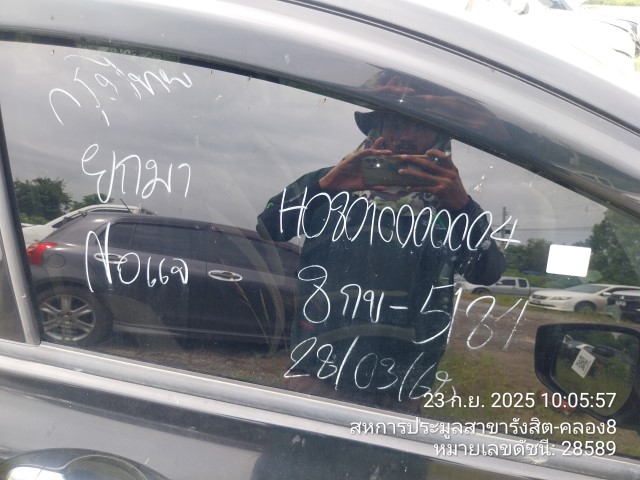 กรุงเทพ
ยกมา
รอแจ้ง
H08010000004
8กข-5181
28/03/68
23 ก.ย. 2025 10:05:57
สหการประมูลสาขารังสิต-คลอง8
หมายเลขดัชนี: 28589